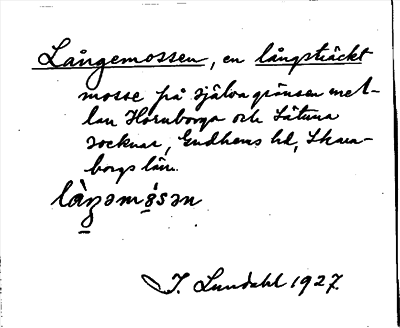 Långemossen, en långsträckt
mosse på själva gränsen mel-
lan Hornborga och Sätuna
socknar, Gudhems hd, Skara-
borgs län.
làŋəmósən
I. Lundahl 1927.